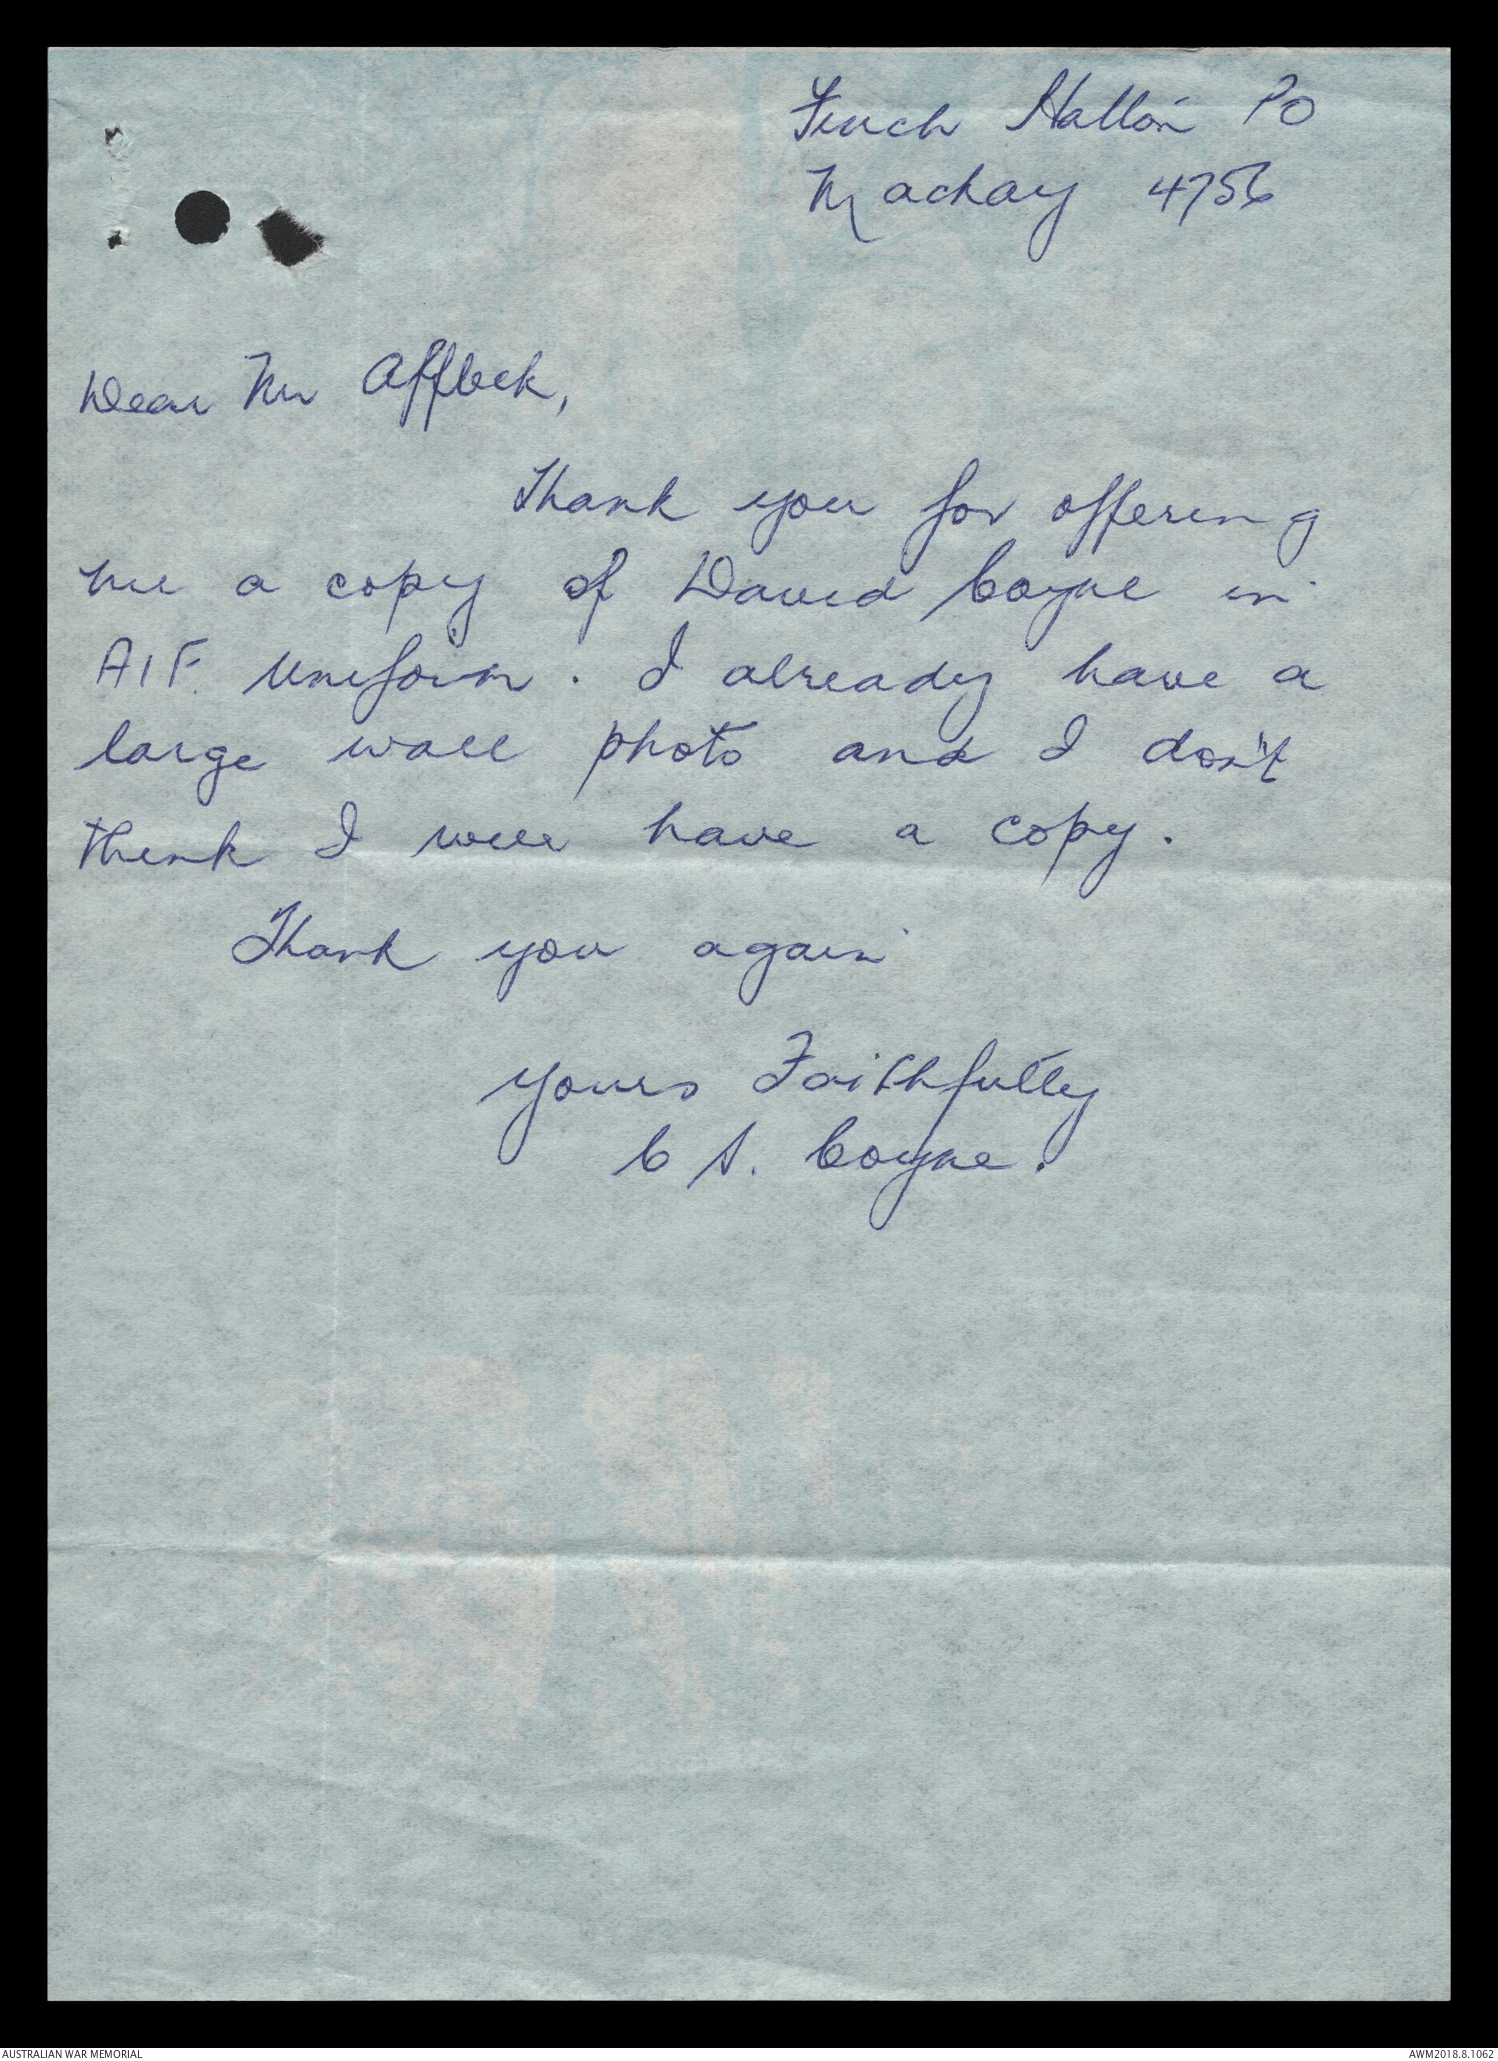 Finch Hatton PO
Mackay 4756
Dear Mr Affleck,
Thank you for offering
me a copy of David Coyne in
AIF. Uniform. I already have a
large wall photo and I don't
think I will have a copy.
Thank you again
yours Faithfully
C S. Coyne.
AUSTRALIAN WAR MEMORIAL
AWM2018.8.1062